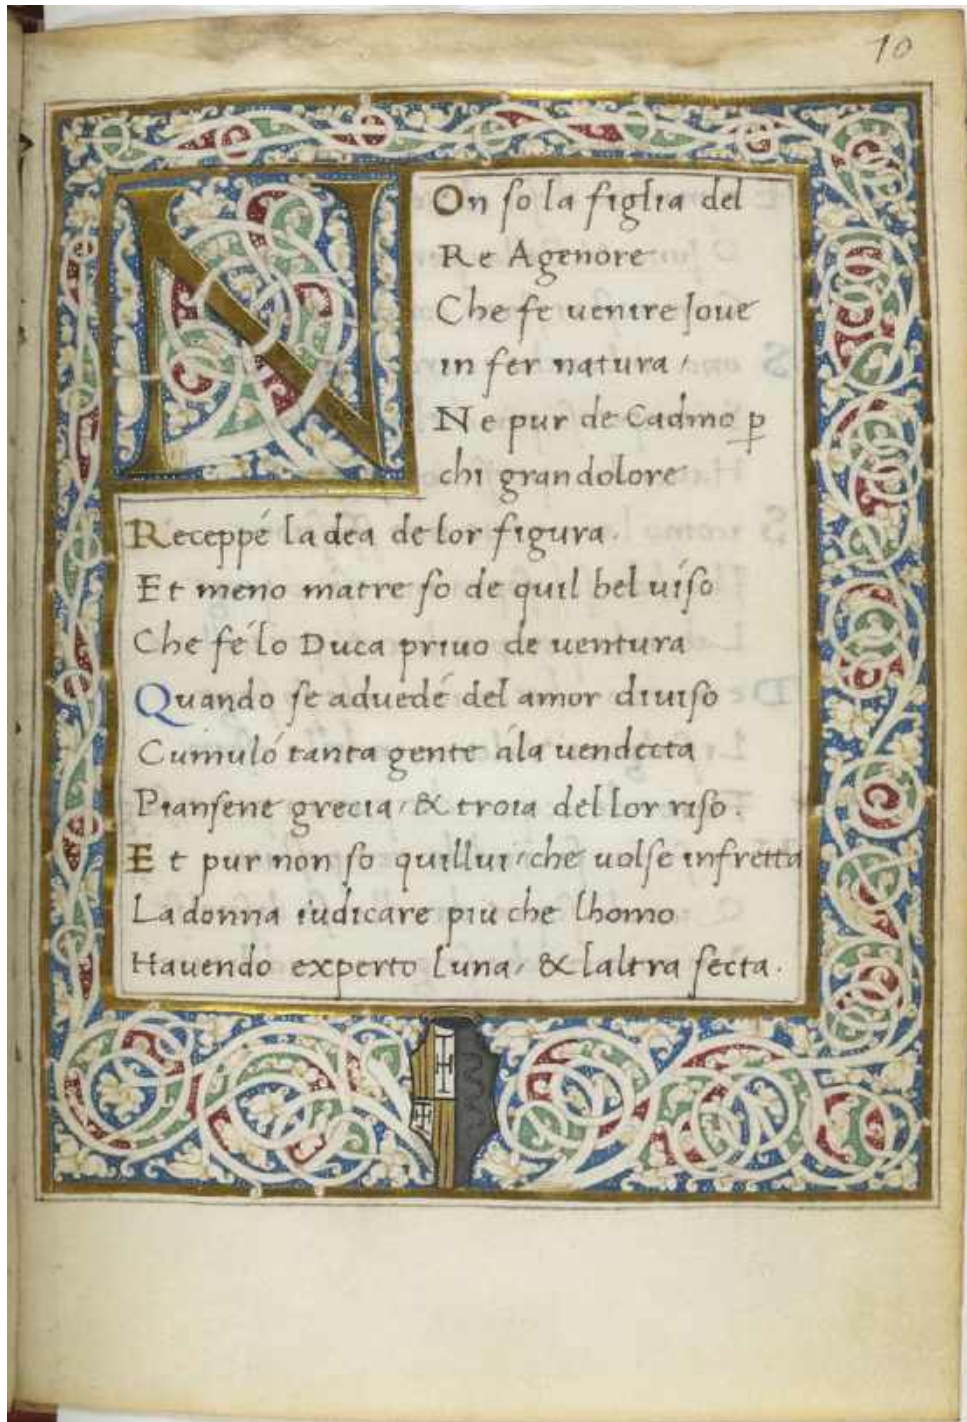 10
NOn so la figlia del
Re Agenore
Che fe uenire Joue
in fer natura /
Ne pur de Cadmo ꝑ
chi gran dolore
Receppé la dea de lor figura.
Et meno matre so de quil bel uiso
Che fé lo Duca priuo de uentura
Quando se aduedé del amor diuiso
Cumuló tanta gente ála uendecta
Piansene grecia / & troia del lor riso.
Et pur non so quillui / che uolse infretta
La donna iudicare piu che lhomo
Hauendo experto luna / & laltra secta.